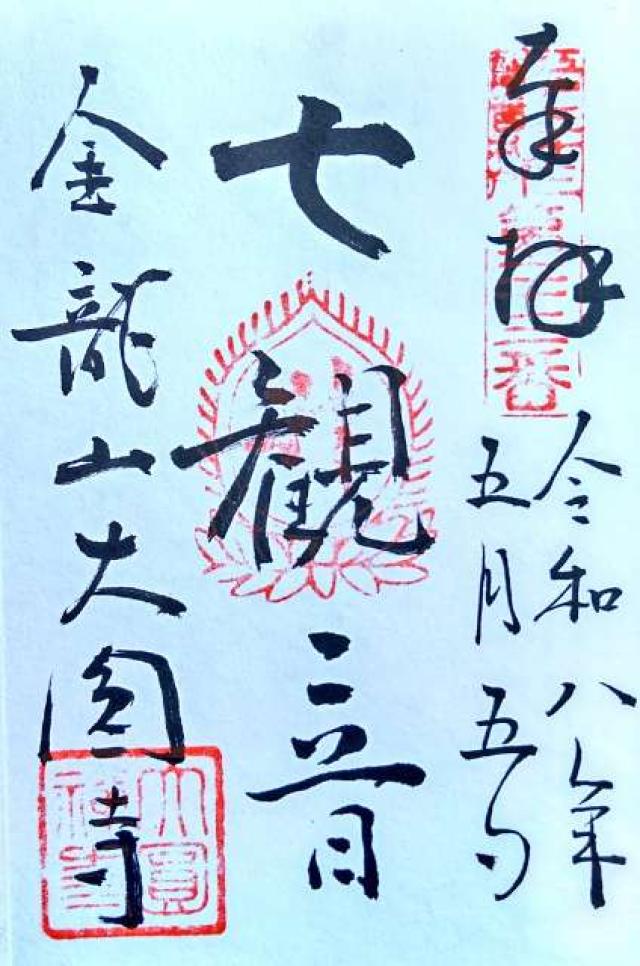 奉拝
令和八年
五月五日
七観音
金龍山大圓寺